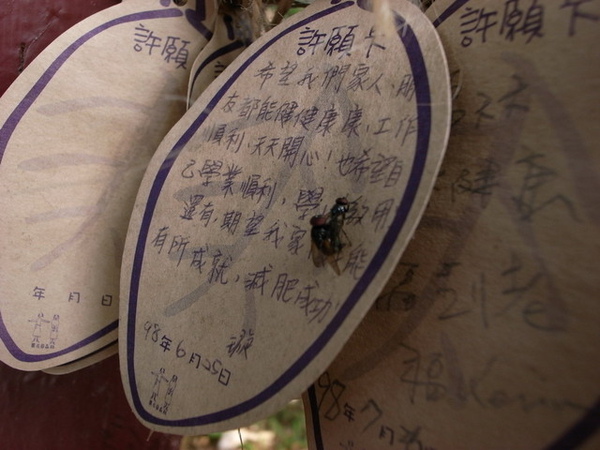 許願
年 月 日
許願卡
希望我們家人、朋
友都能健健康康、工作
順利、天天開心！也希望自
己學業順利，學 致用
還有，期望我家 能
有所成就，減肥成功！
98年6月05日
許願卡
健康
福到老
福 Karen
98年7月